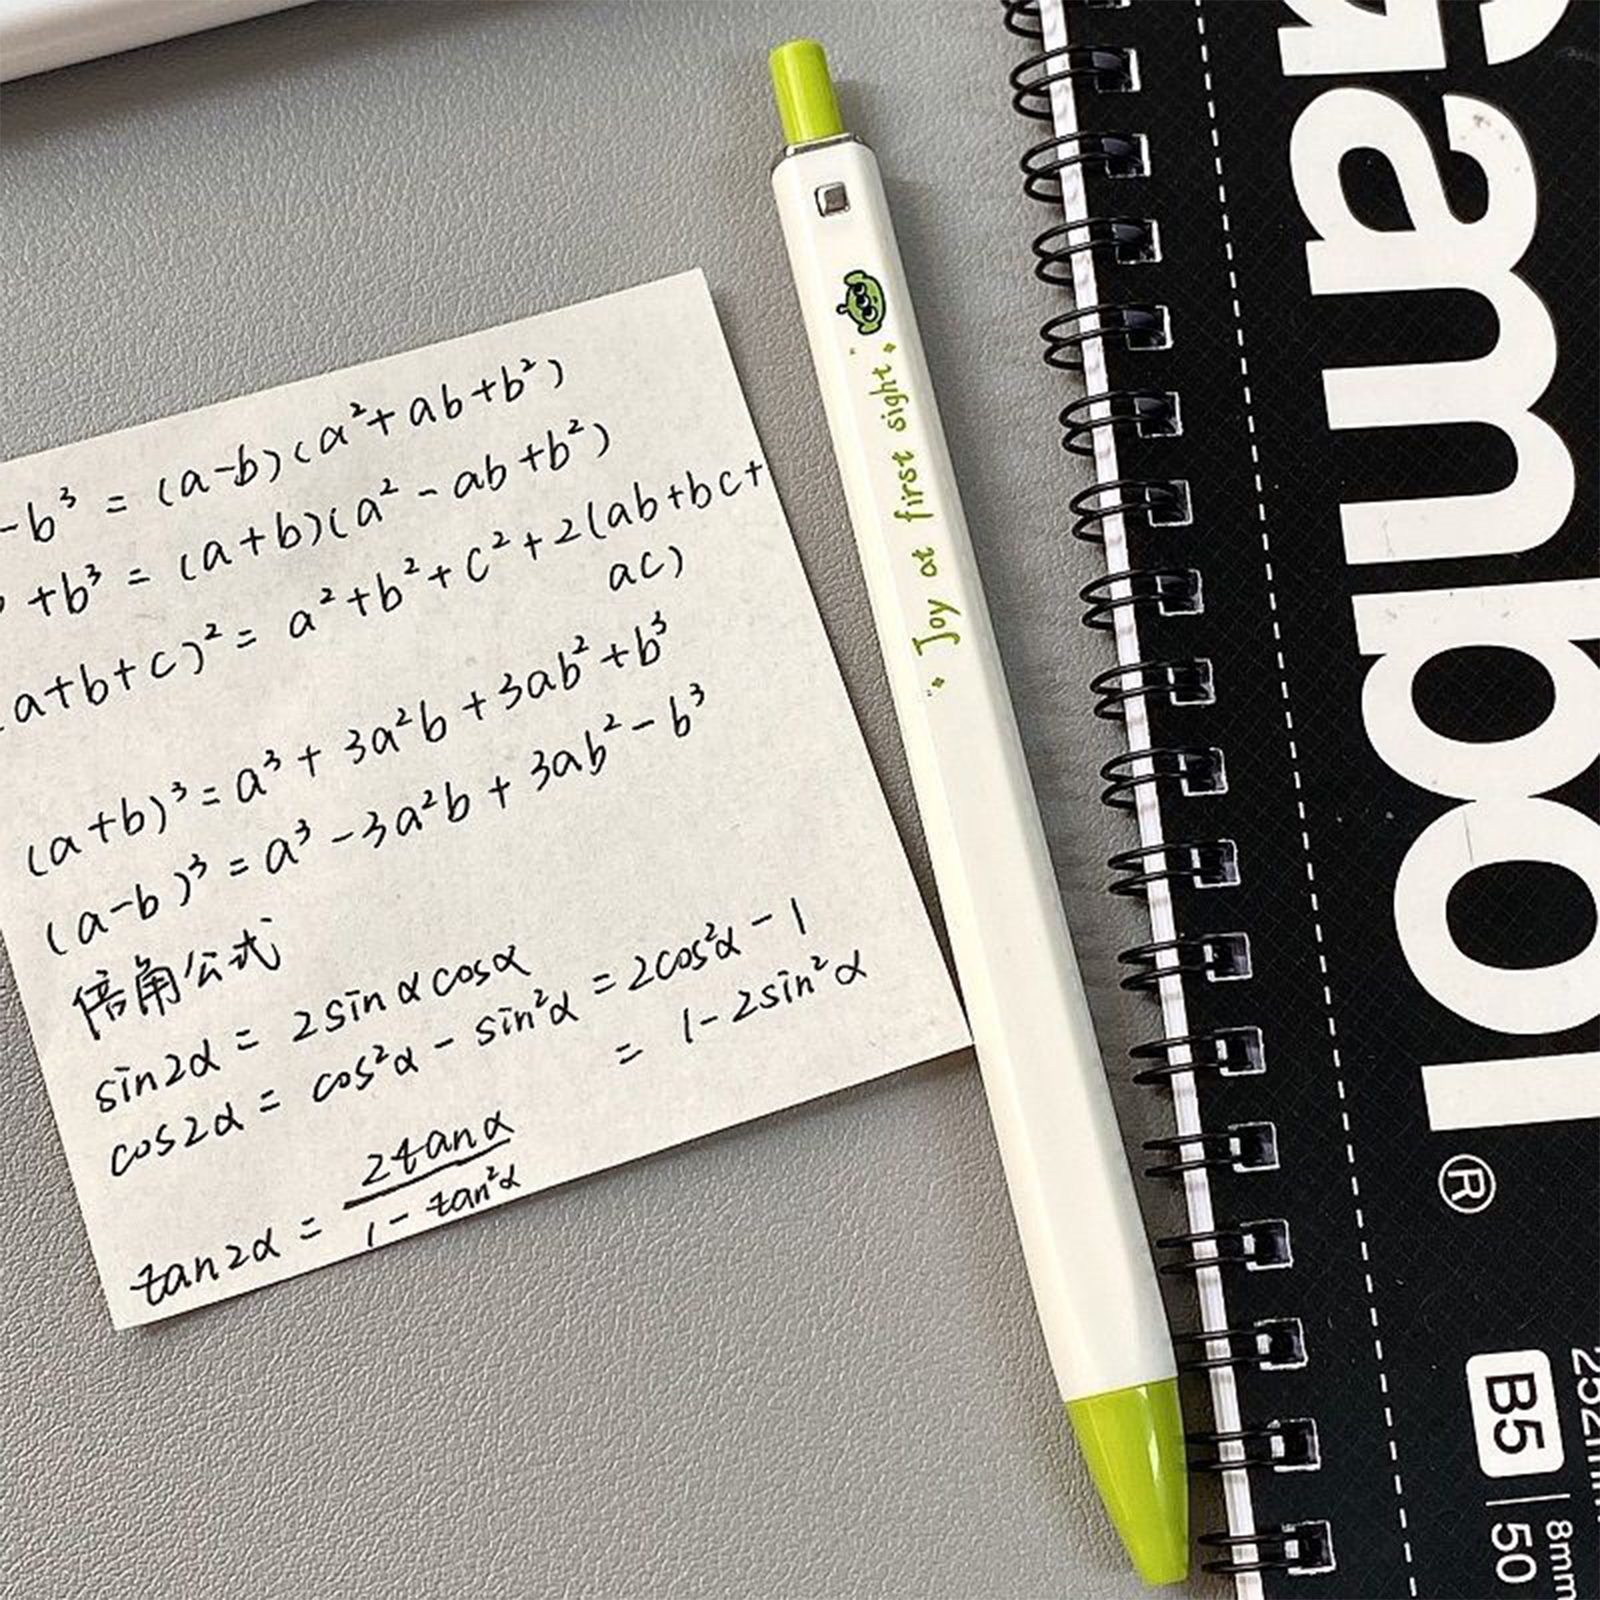 -b³ = (a-b)(a²+ab+b²)
+b³ = (a+b)(a²-ab+b²)
a+b+c)² = a²+b²+c²+2(ab+bc+
ac)
(a+b)³ = a³+3a²b+3ab²+b³
(a-b)³ = a³-3a²b+3ab²-b³
倍角公式
sin2α = 2sinαcosα
cos2α = cos²α - sin²α = 2cos²α - 1
= 1-2sin²α
tan2α = 2tanα
1-tan²α
"Joy at first sight"
Gambol®
B5 50
8mm